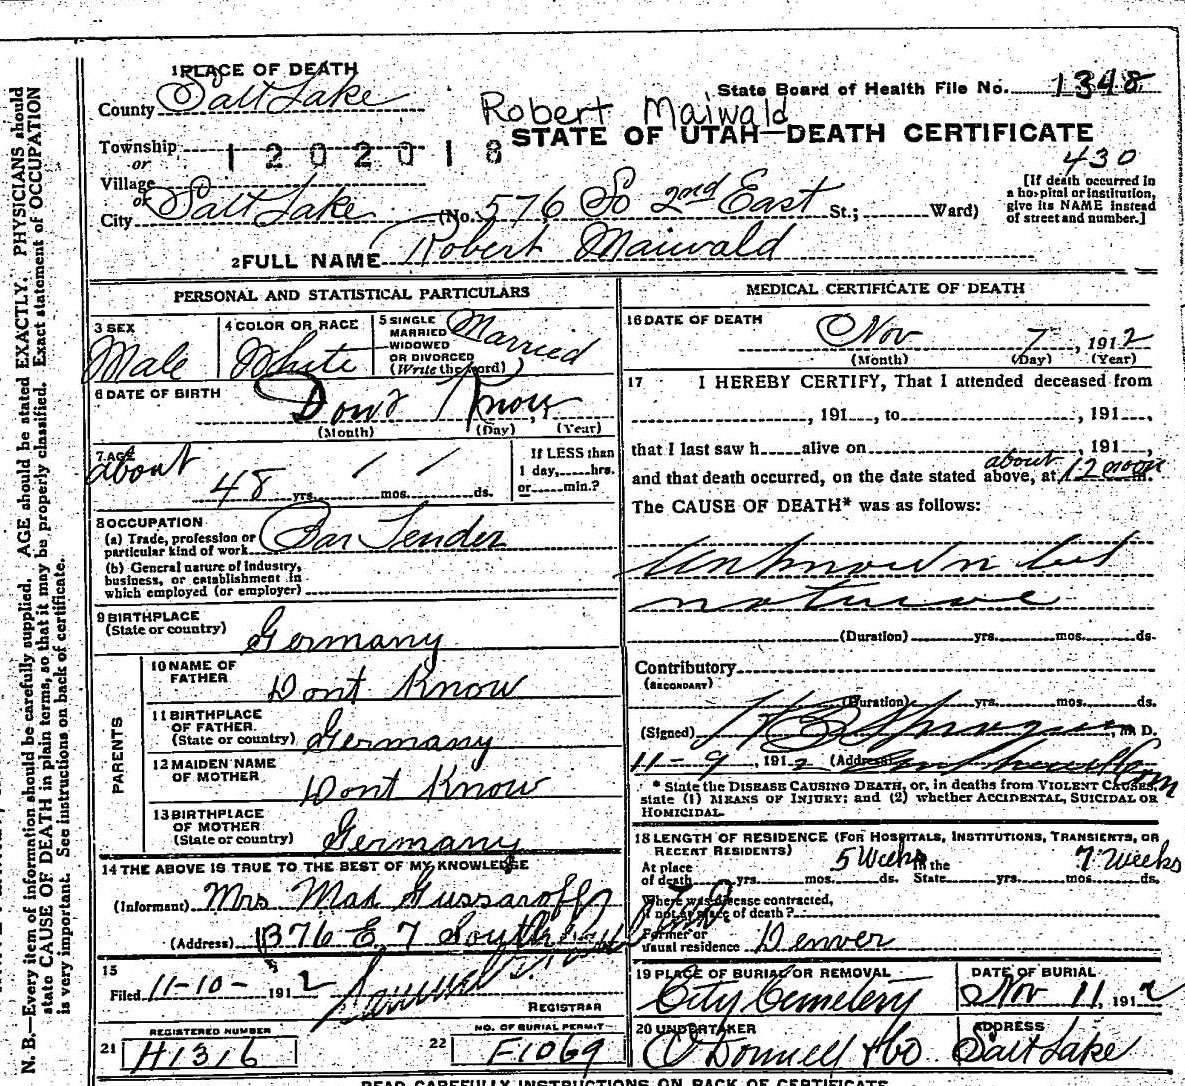 1 PLACE OF DEATH
County Salt Lake
State Board of Health File No. 1348
Robert Maiwald
STATE OF UTAH—DEATH CERTIFICATE
Township
or
1202018
430
Village
or
City Salt Lake (No. 576 So 2nd East St.; Ward)
[If death occurred in
a hospital or institution,
give its NAME instead
of street and number.]
2 FULL NAME Robert Maiwald
PERSONAL AND STATISTICAL PARTICULARS
3 SEX
Male
4 COLOR OR RACE
White
5 SINGLE
MARRIED
WIDOWED
OR DIVORCED
(Write the word)
Married
6 DATE OF BIRTH
Dont Know
(Month) (Day) (Year)
7 AGE
about 48 yrs. / mos. / ds.
If LESS than
1 day, hrs.
or min.?
8 OCCUPATION
(a) Trade, profession or
particular kind of work Bar Tender
(b) General nature of industry,
business, or establishment in
which employed (or employer)
9 BIRTHPLACE
(State or country) Germany
PARENTS
10 NAME OF
FATHER Dont Know
11 BIRTHPLACE
OF FATHER
(State or country) Germany
12 MAIDEN NAME
OF MOTHER Dont Know
13 BIRTHPLACE
OF MOTHER
(State or country) Germany
14 THE ABOVE IS TRUE TO THE BEST OF MY KNOWLEDGE
(Informant) Mrs Max
(Address) 1376 E 7 South
15
Filed 11-10- 1912
REGISTRAR
REGISTERED NUMBER
21 H1316
NO. OF BURIAL PERMIT
22 E1069
MEDICAL CERTIFICATE OF DEATH
16 DATE OF DEATH
Nov 7, 1912
(Month) (Day) (Year)
17 I HEREBY CERTIFY, That I attended deceased from
, 191 , to , 191 ,
that I last saw h alive on , 191 ,
and that death occurred, on the date stated above, at about 12 noon m.
The CAUSE OF DEATH* was as follows:
Unknown but
nature
(Duration) yrs. mos. ds.
Contributory
(SECONDARY)
(Duration) yrs. mos. ds.
(Signed) Sprague, M D.
11-9, 1912 (Address)
* State the DISEASE CAUSING DEATH, or, in deaths from VIOLENT CAUSES,
state (1) MEANS OF INJURY; and (2) whether ACCIDENTAL, SUICIDAL OR
HOMICIDAL.
18 LENGTH OF RESIDENCE (FOR HOSPITALS, INSTITUTIONS, TRANSIENTS, OR
RECENT RESIDENTS)
At place
of death yrs. mos. ds. 5 Weeks In the State yrs. mos. ds. 7 Weeks
Where was disease contracted,
if not at place of death?
Former or
usual residence Denver
19 PLACE OF BURIAL OR REMOVAL
City Cemetery
DATE OF BURIAL
Nov 11, 1912
20 UNDERTAKER
O'Donnell & Co
ADDRESS
Salt Lake
N. B.—Every item of information should be carefully supplied. AGE should be stated EXACTLY. PHYSICIANS should
state CAUSE OF DEATH in plain terms, so that it may be properly classified. Exact statement of OCCUPATION
is very important. See instructions on back of certificate.
READ CAREFULLY INSTRUCTIONS ON BACK OF CERTIFICATE